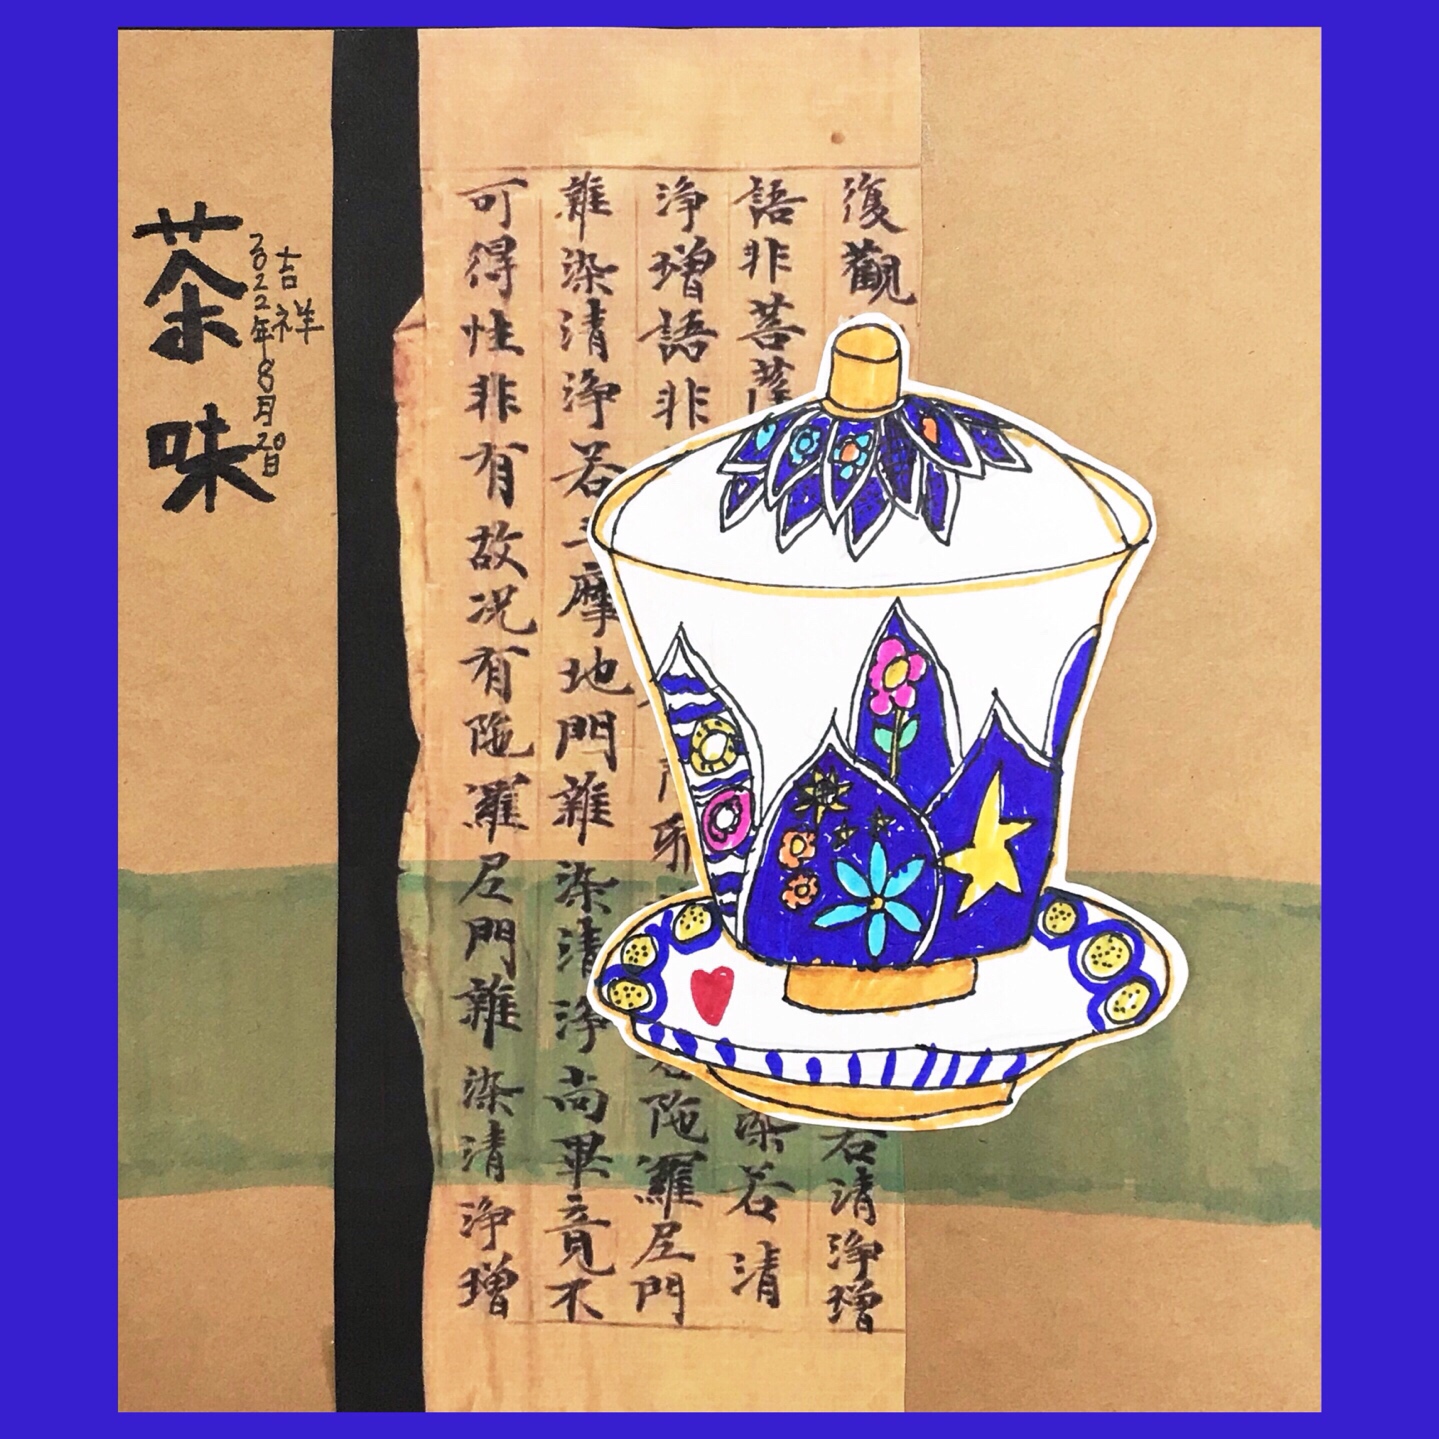 復觀 清淨增
語非菩薩 染若清
淨增語非 陁羅尼門
雜染清淨若三摩地門雜染清淨尚畢竟不
可得性非有故况有陁羅尼門雜染清淨增
吉祥
2022年8月20日
茶味